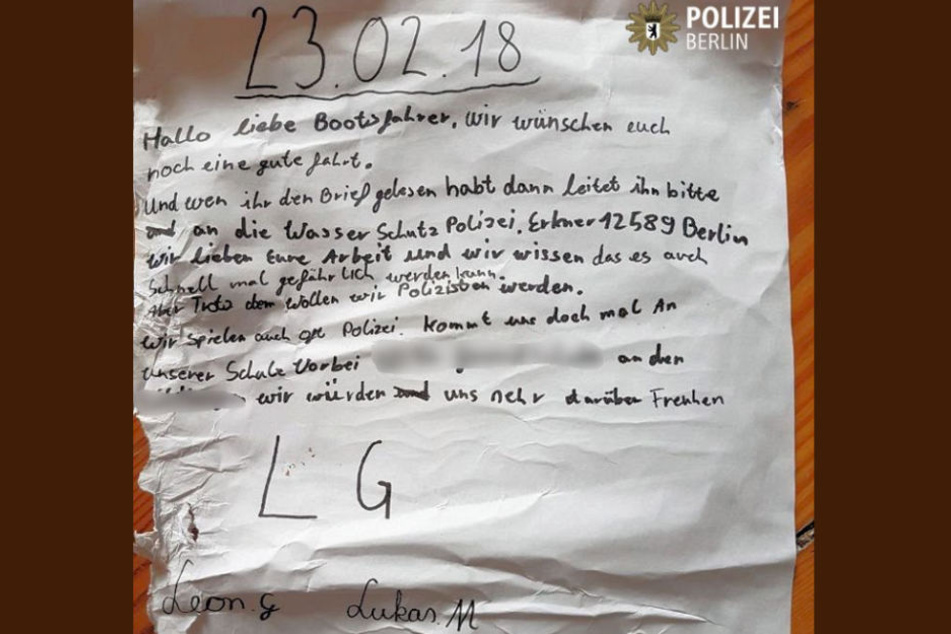 POLIZEI
BERLIN
23.02.18
Hallo liebe Bootsfahrer, wir wünschen euch
noch eine gute fahrt.
Und wen ihr den Brief gelesen habt dann leitet ihn bitte
an die Wasser Schutz Polizei, Erkner 12589 Berlin
wir lieben Eure Arbeit und wir wissen das es auch
Schnell mal gefährlich werden kann.
Aber Trotz dem wollen wir Polizisten werden.
wir spielen auch oft Polizei. Kommt uns doch mal An
unserer Schule Vorbei an den
wir würden uns sehr darüber Freuhen
L G
Leon.G Lukas.M